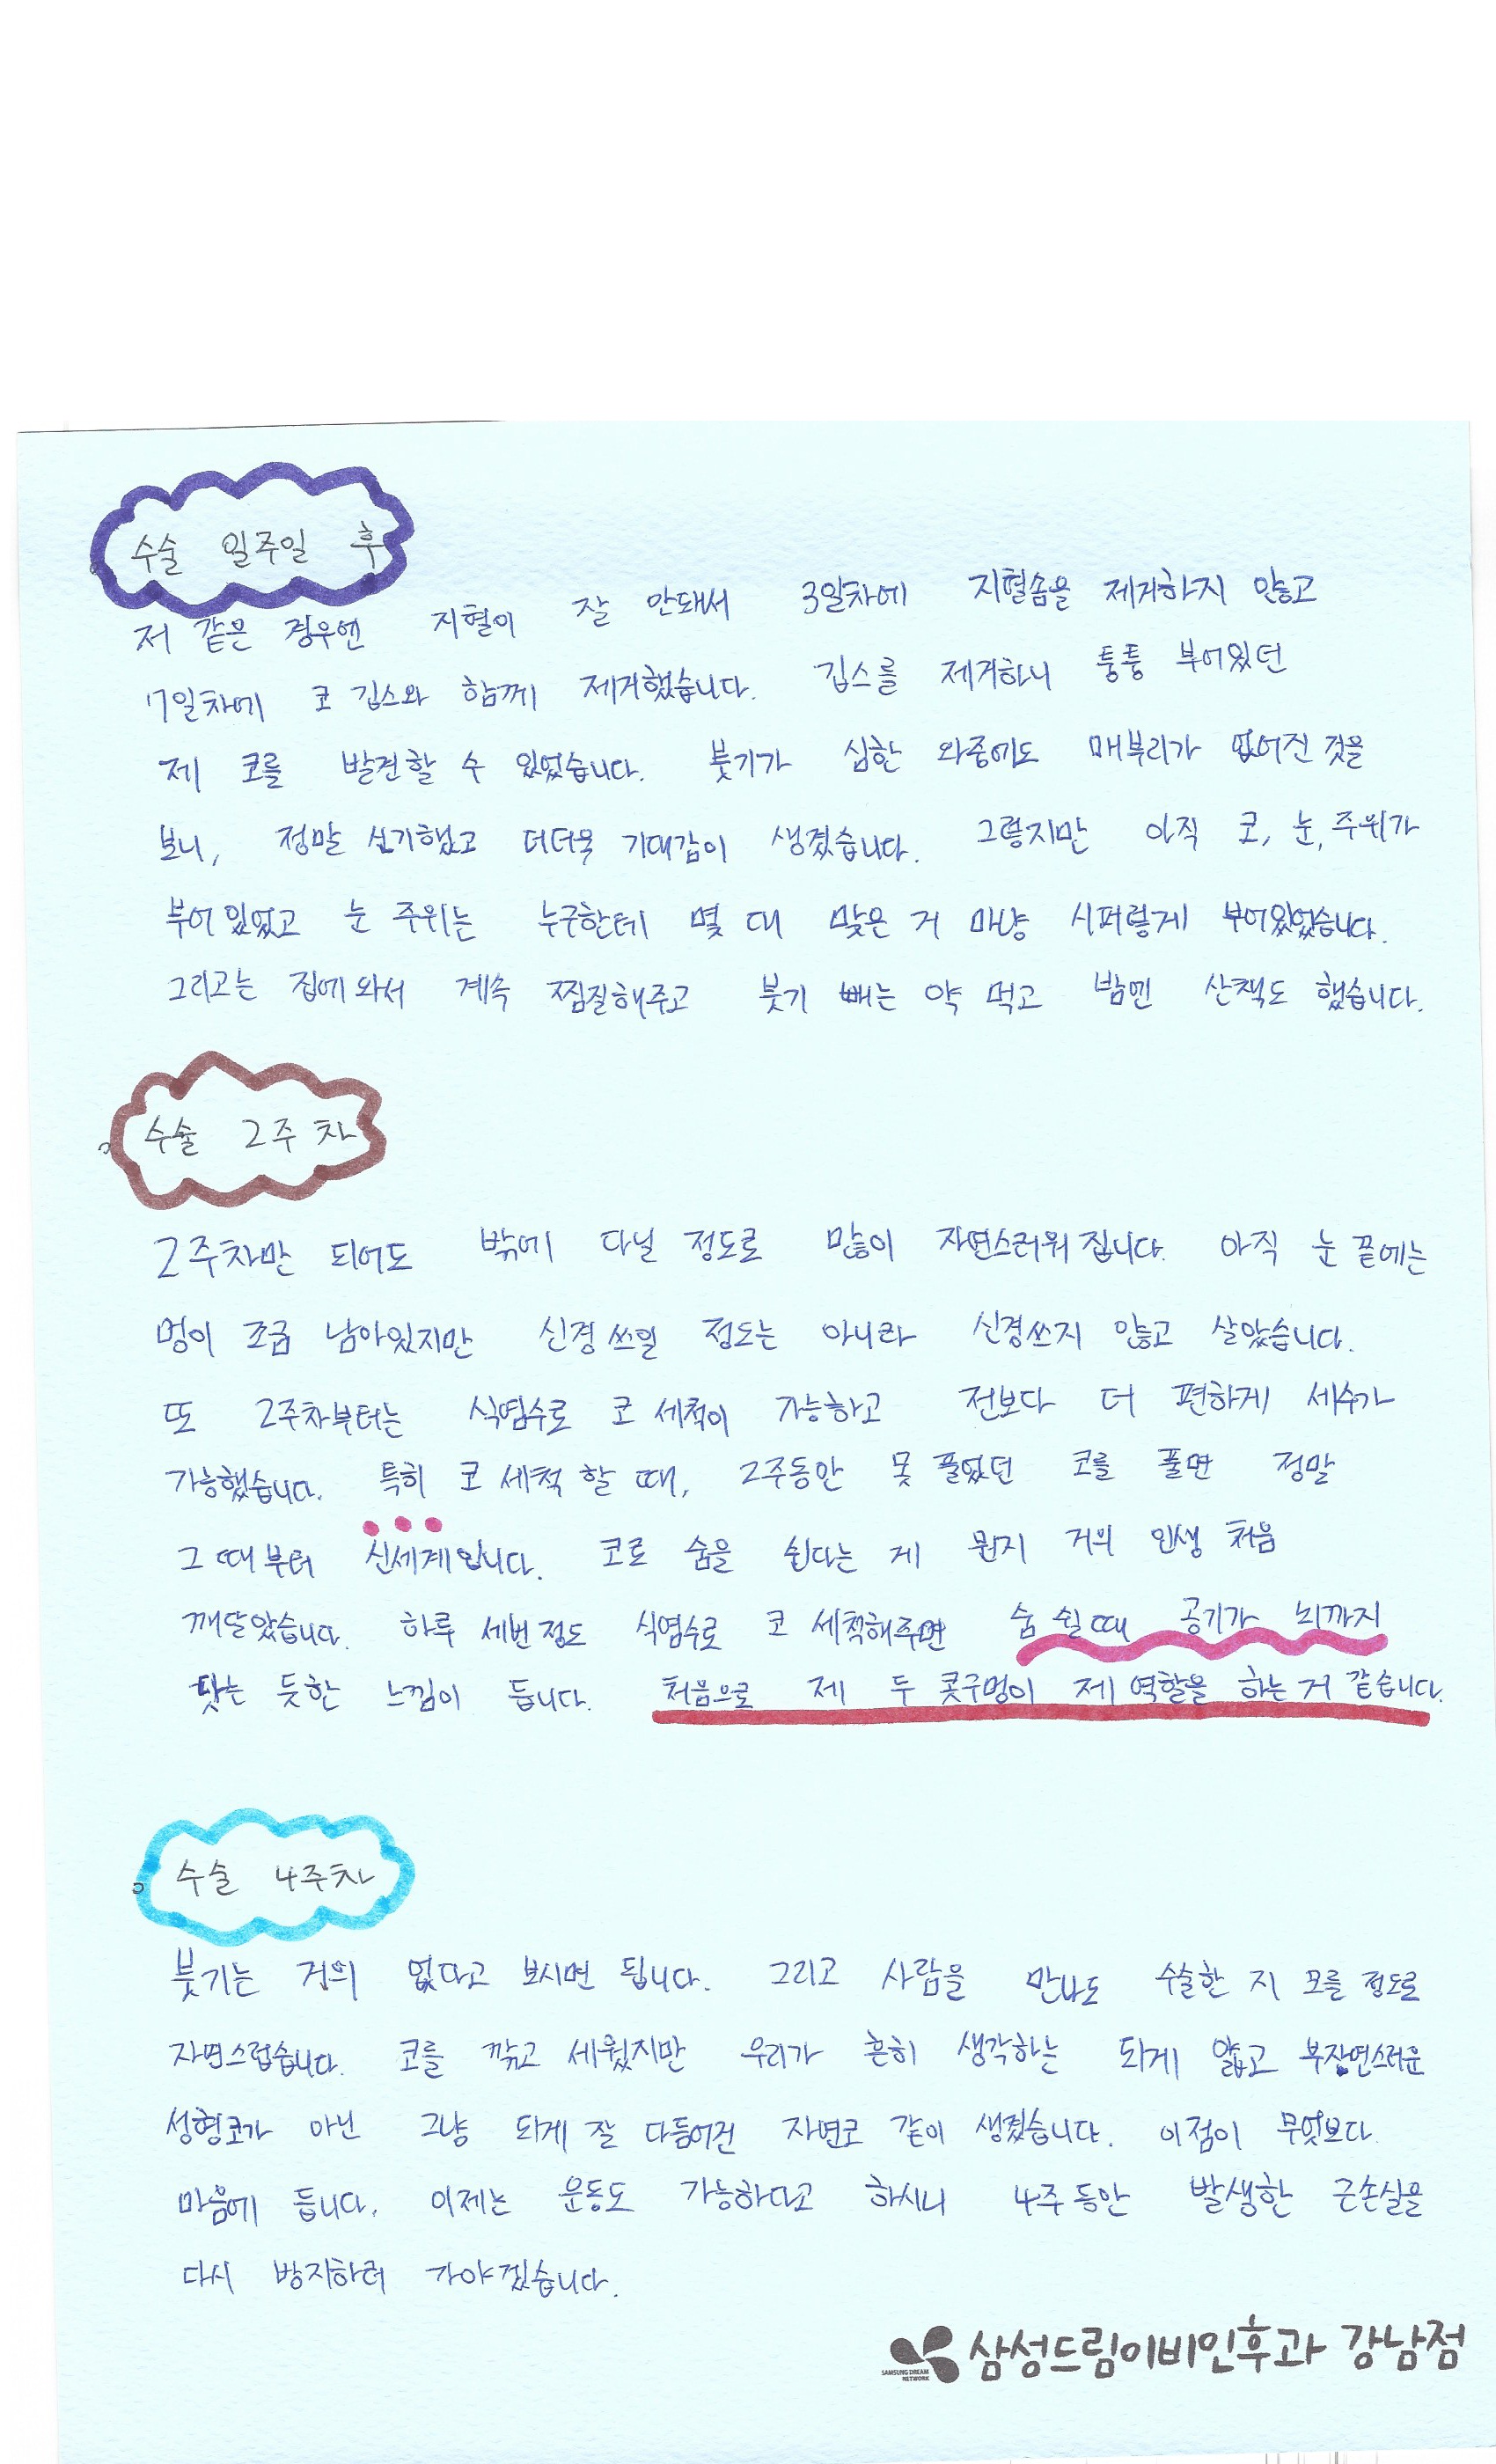 수술 일주일 후
저 같은 경우엔 지혈이 잘 안돼서 3일차에 지혈솜을 제거하지 않고
7일차에 코 깁스와 함께 제거했습니다. 깁스를 제거하니 퉁퉁 부어있던
제 코를 발견할 수 있었습니다. 붓기가 심한 와중에도 매부리가 없어진 것을
보니, 정말 신기했고 더더욱 기대감이 생겼습니다. 그렇지만 아직 코, 눈, 주위가
부어있었고 눈 주위는 누구한테 몇 대 맞은 거 마냥 시퍼렇게 부어있었습니다.
그리고는 집에 와서 계속 찜질해주고 붓기 빼는 약 먹고 밤엔 산책도 했습니다.
수술 2주차
2주차만 되어도 밖에 다닐 정도로 많이 자연스러워집니다. 아직 눈 끝에는
멍이 조금 남아있지만 신경 쓰일 정도는 아니라 신경쓰지 않고 살았습니다.
또 2주차부터는 식염수로 코 세척이 가능하고 전보다 더 편하게 세수가
가능했습니다. 특히 코 세척 할 때, 2주동안 못 풀었던 코를 풀면 정말
그때부터 신세계입니다. 코로 숨을 쉰다는 게 뭔지 거의 인생 처음
깨달았습니다. 하루 세번 정도 식염수로 코 세척해주면 숨 쉴때 공기가 뇌까지
닿는 듯한 느낌이 듭니다. 처음으로 제 두 콧구멍이 제 역할을 하는 거 같습니다.
수술 4주차
붓기는 거의 없다고 보시면 됩니다. 그리고 사람을 만나도 수술한 지 모를 정도로
자연스럽습니다. 코를 깎고 세웠지만 우리가 흔히 생각하는 되게 얇고 부자연스러운
성형코가 아닌 그냥 되게 잘 다듬어진 자연코 같이 생겼습니다. 이점이 무엇보다
마음에 듭니다. 이제는 운동도 가능하다고 하시니 4주동안 발생한 근손실을
다시 방지하러 가야겠습니다.
SAMSUNG DREAM NETWORK 삼성드림이비인후과 강남점